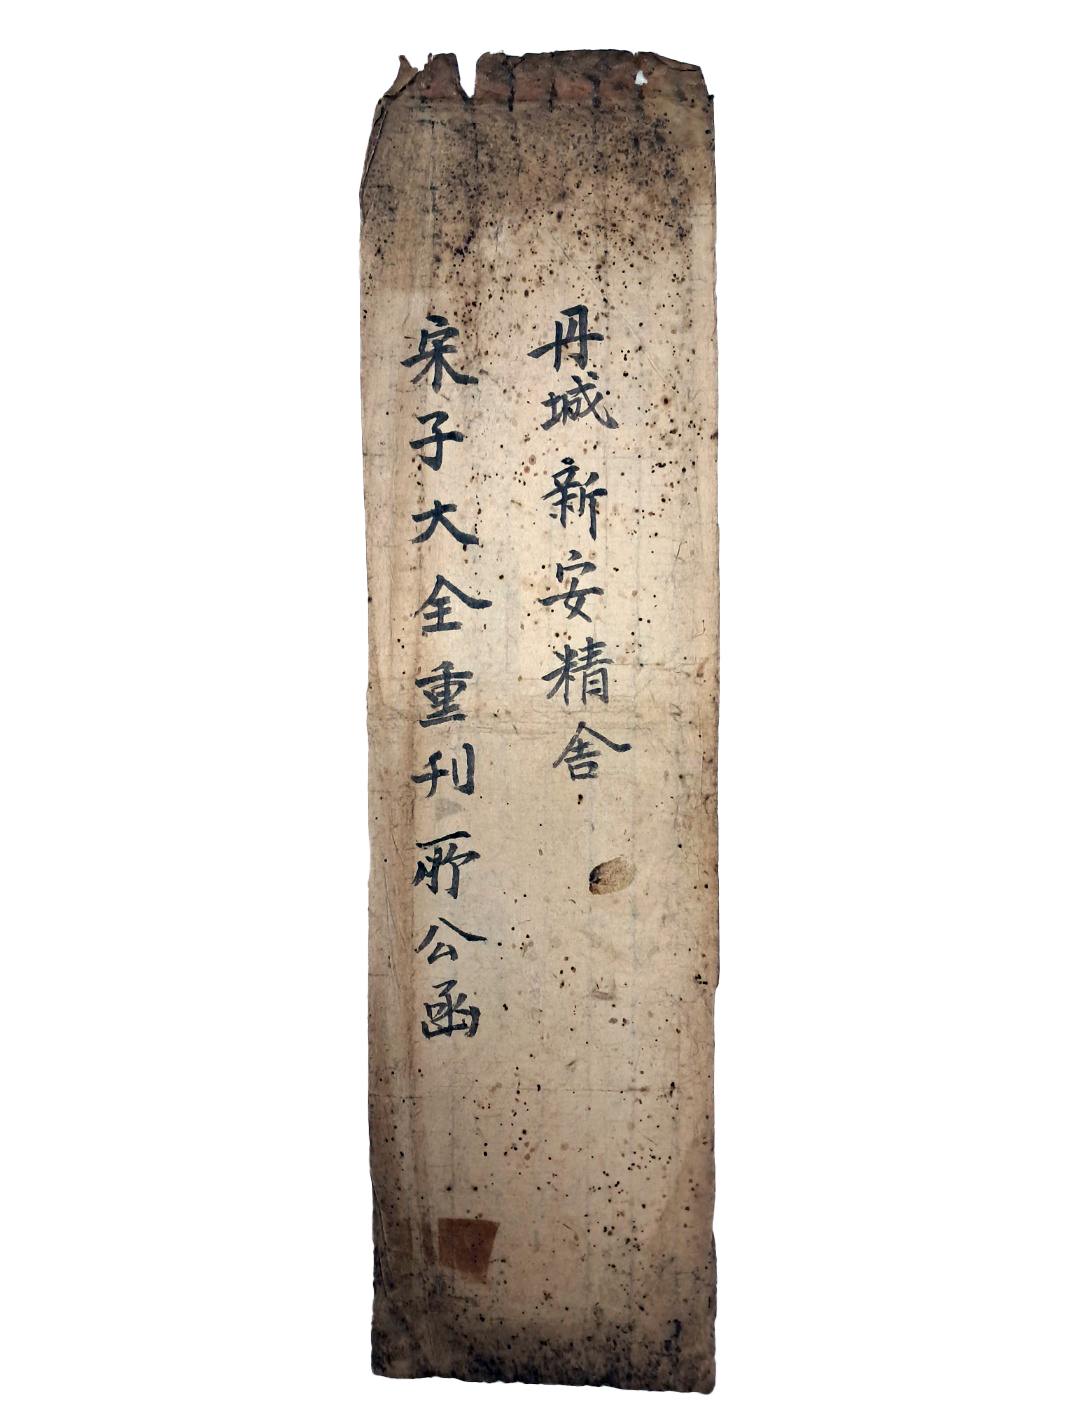 丹城新安精舍
宋子大全重刊所公函